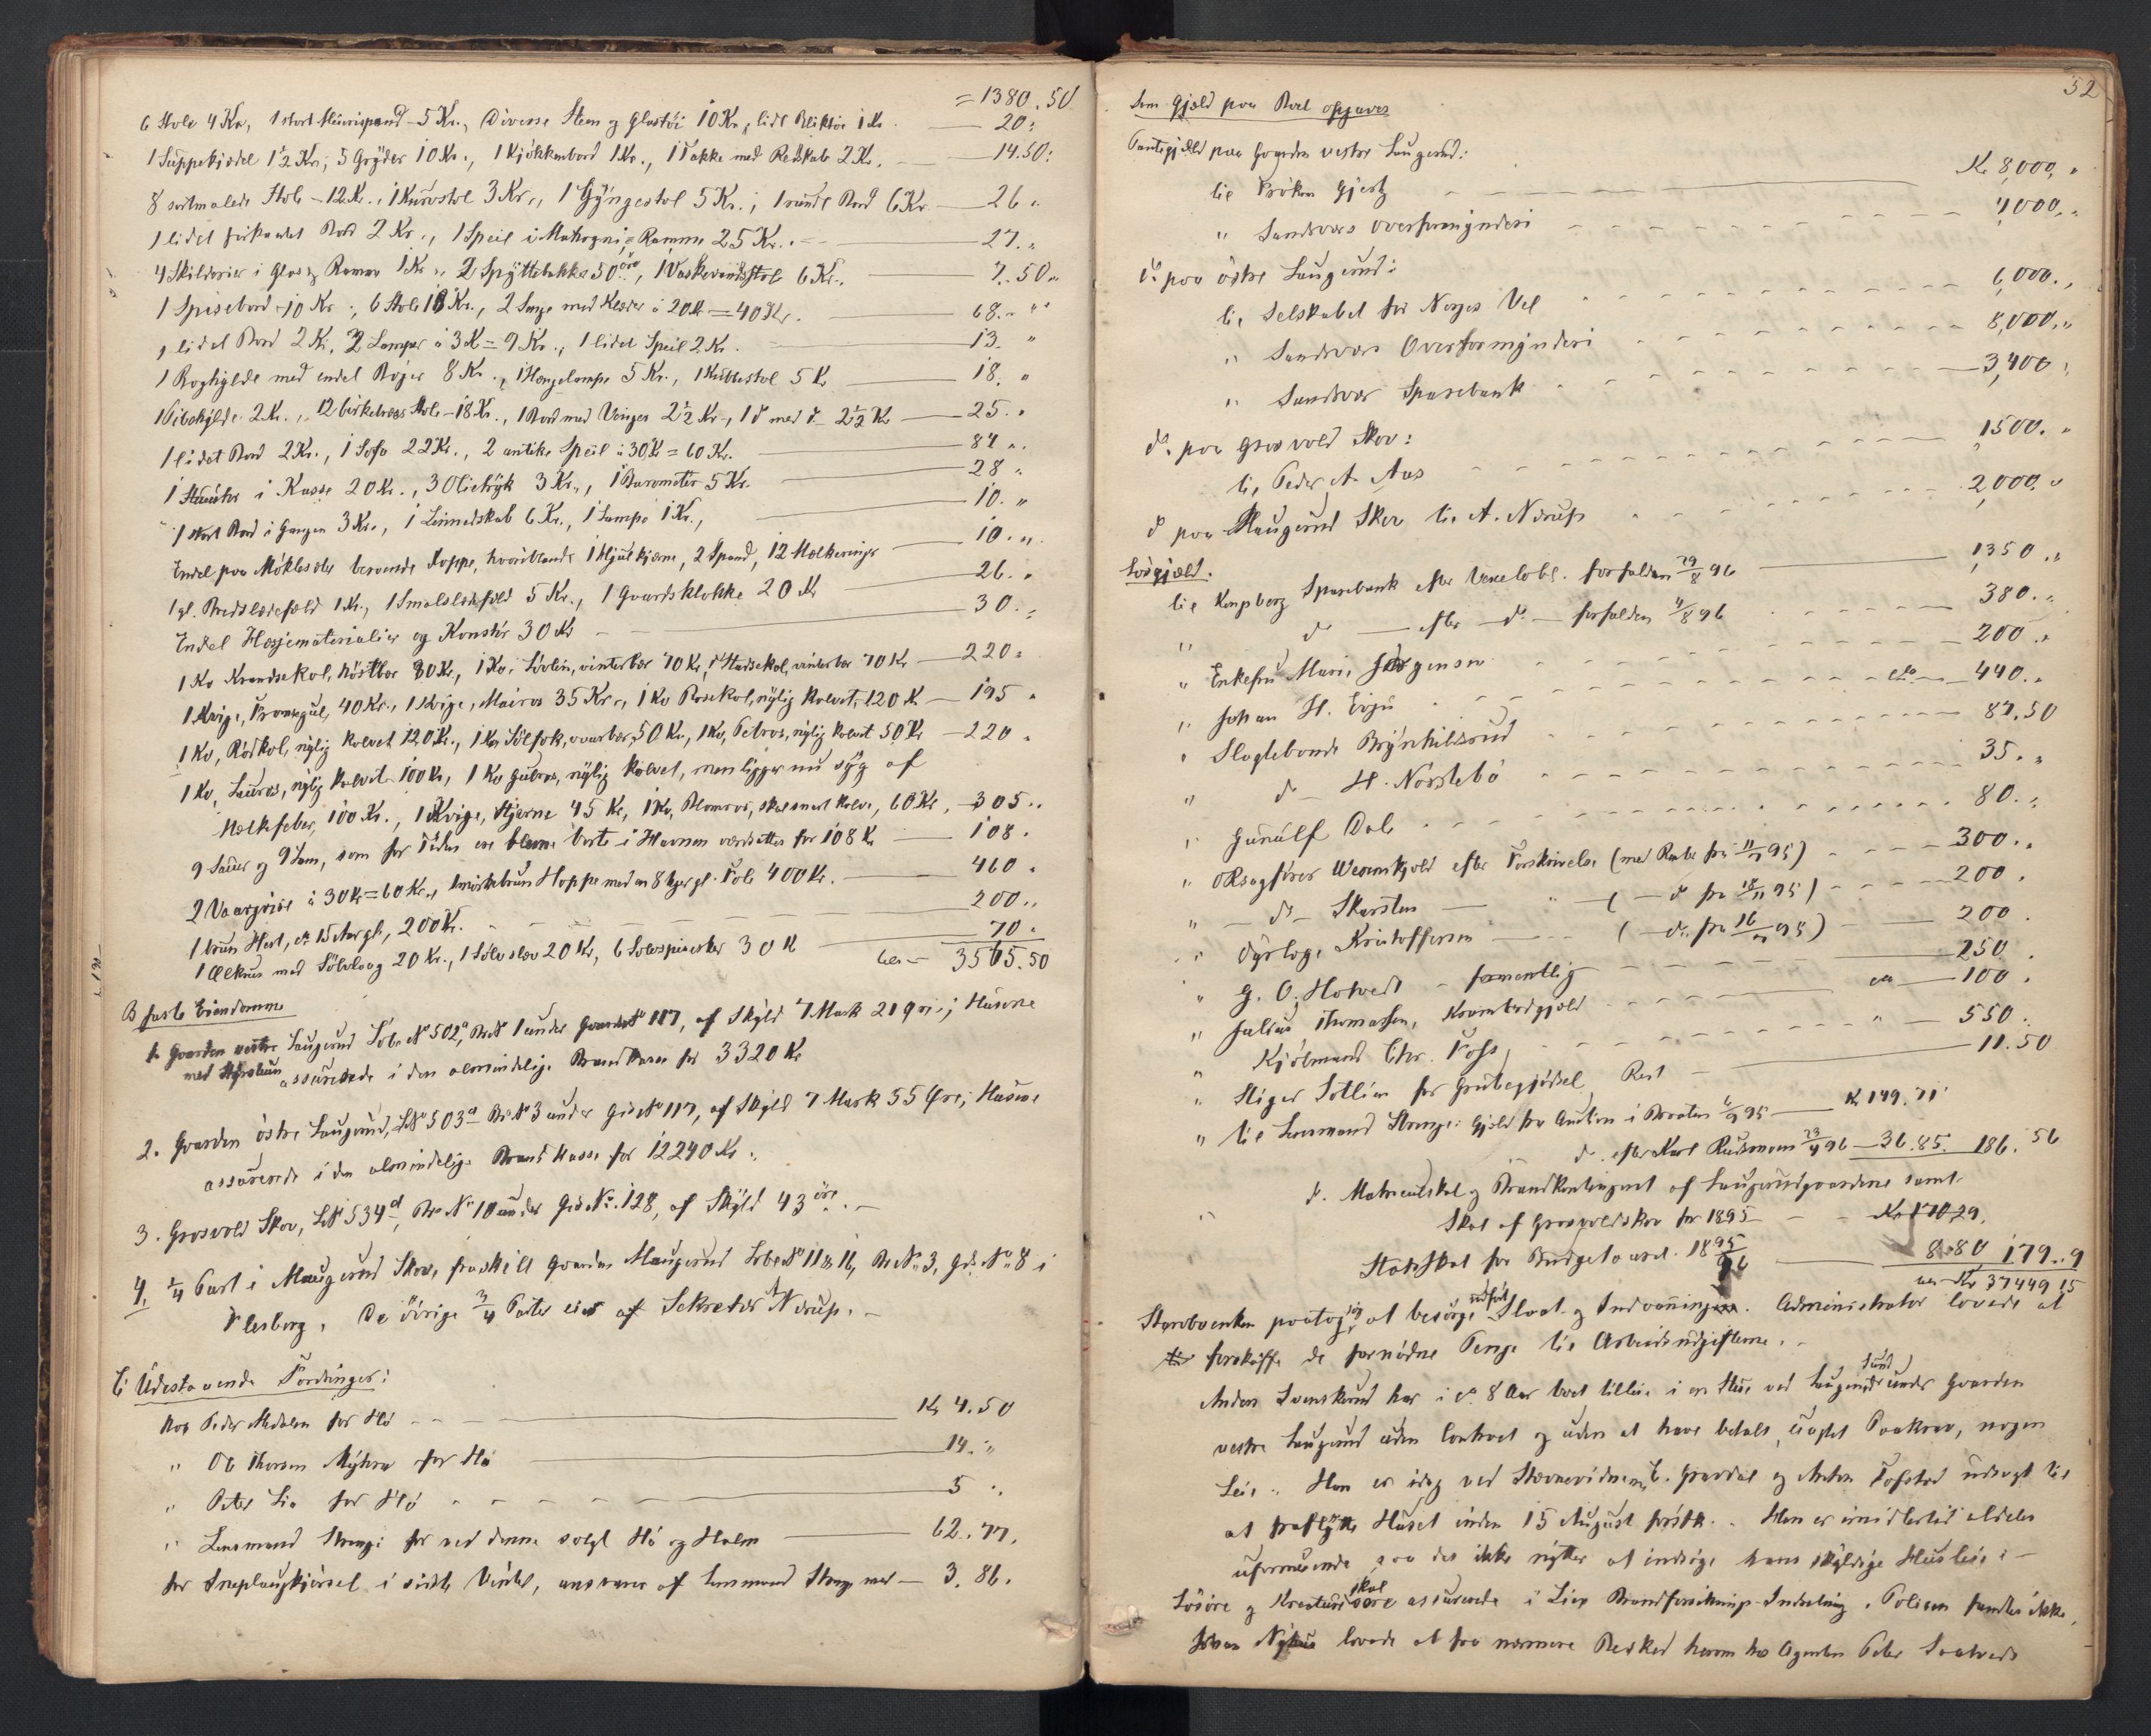 = 1380.50
6 Stole 4 Kr, 1 stort 5 Kr., Diverse Sten og Glastöi 10 Kr, lidt Bliktöi 1 Kr. — 20 „
1 Suppekjedel 1½ Kr., 5 Gryder 10 Kr., 1 Kjökkenbord 1 Kr., 1 Takke med Redskab 2 Kr. — 14.50 „
8 sortmalede Stole – 12 Kr., 1 Kurvstol 3 Kr., 1 Gyngestol 5 Kr., 1 rundt Bord 6 Kr — 26 „
1 lidet firkantet Bord 2 Kr., 1 Speil i Mahogni Ramme 25 Kr. — 27 „
4 Skilderier i Glas og Ramme 1 Kr., 2 Spyttebakke 50 öre, 1 Vaskevandsstol 6 Kr. — 7.50 „
1 Spisebord 10 Kr., 6 Stole 18 Kr., 2 Senge med Klæder à 20 Kr = 40 Kr. — 68 „
1 lidet Bord 2 Kr., 2 Lamper à 3 Kr = 9 Kr., 1 lidet Speil 2 Kr. — 13 „
1 Boghylde med endel Böger 8 Kr., 1 Hængelampe 5 Kr., 1 Kubbestol 5 Kr — 18 „
1 Pibehylde 2 Kr., 12 birketræs Stole – 18 Kr., 1 Bord med Vinger 2½ Kr., 1 do med do 2½ Kr — 25 „
1 lidet Bord 2 Kr., 1 Sofa 22 Kr., 2 antike Speil à 30 Kr = 60 Kr. — 84 „
1 Stueuhr i Kasse 20 Kr., 3 Olietryk 3 Kr., 1 Barometer 5 Kr. — 28 „
1 stort Bord i Gangen 3 Kr., 1 Linnedskab 6 Kr., 1 Lampe 1 Kr., — 10 „
Endel paa beroende Koppe, hvoriblandt 1 Hjulkjærne, 2 Spand, 12 Melkeringe — 10 „
1 gl. Bredslædefæld 1 Kr., 1 Smalslædefæld 5 Kr., 1 Gaardsklokke 20 Kr — 26 „
Endel Hesjematerialier og Konstör 30 Kr — 30 „
1 Ko Krandsekol, höstbær 80 Kr, 1 Ko, Lövlin, vinterbær 70 Kr, 1 Stadsekol, vinterbær 70 Kr — 220 „
1 Kvige, Fromgul, 40 Kr., 1 Kvige, Mairos 35 Kr., 1 Ko Rosekol, nylig kalvet, 120 Kr — 195 „
1 Ko, Rödkol, nylig kalvet 120 Kr., 1 Ko Sölfok, vaarbær, 50 Kr, 1 Ko, Petros, nylig kalvet 50 Kr — 220 „
1 Ko, Lauros, nylig kalvet 100 Kr, 1 Ko Gulros, nylig kalvet, men ligger nu syg af
Melkefeber, 100 Kr., 1 Kvige, Stjerne 45 Kr, 1 Ko, Blomros, skal snart kalve, 60 Kr, — 305 „
9 Sauer og 9 Lam, som for Tiden ere borte i Havnen værdsættes for 108 Kr — 108 .
2 Vaargrise à 30 Kr = 60 Kr., 1 mörkebrun Hoppe med en 8 Uger gl. Fole 400 Kr. — 460 .
1 brun Hest, ca 15 Aar gl., 200 Kr. — 200 „
1 Ölkrus med Sölvlaag 20 Kr., 1 Sölvslev 20 Kr, 6 Sölvspiseskeer 30 Kr — 70 „
ialt — 3565.50
B faste Eiendomme
1. Gaarden vestre Laugerud Löbe No 502a, Br No 1 under Gaards No 117, af Skyld 7 Mark 21 Öre; Husene
assurerede i den almindelige Brandkasse for 3320 Kr
2. Gaarden östre Laugerud, LNo 503a Br No 3 under Grds No 117, af Skyld 7 Mark 55 Öre; Husene
assurerede i den almindelige Brandkasse for 12240 Kr.
3. Grosvold Skov, LNo 534d, Br No 10 under Grds No. 128, af Skyld 43 öre. —
4. ¼ Part i Maugerud Skov, fraskilt Gaarden Maugerud Löbe No 11 & 16, Br No 3, Grds No 8 i
Flesberg. De övrige ¾ Parter eies af Sekretær A. Nerup. —
C Udestaaende Fordringer:
hos Peder Medalen for Hö — Kr 4.50
„ Ole Thorsen Myhra for Hö — 14 „
„ Peter Lia for Hö — 5 „
„ Lensmand Strenge for ved denne solgt Hö og Halm — 62.77.
for Sneplougkjörsel i sidste Vinter, ansvares af Lensmand Strenge med — 3.86.
52
Som Gjæld paa Boet opgaves
Pantegjæld paa Gaarden vestre Laugerud:
til Fröken Gjertz — Kr 8,000 „
„ Sandsvær Overformynderi — 4,000 „
do paa östre Laugerud:
til Selskabet for Norges Vel — 6,000 „
„ Sandsvær Overformynderi — 8,000 „
„ Sandsvær Sparebank — 3,400 „
do. paa Grosvold Skov:
til Peder A. Aas — 1500 „
do paa Maugerud Skov til A. Nerup — 2,000 „
Lösgjæld.
til Kongsberg Sparebank efter Vexelobl. forfalden 29/8 96 — 1,350 „
„ do — efter — do — forfalden 4/8 96 — 380 „
„ Enkefru Marie Jörgensen — 200 „
„ Johan H. Evju — ca — 440 „
„ Slagtebonde Brynhildsrud — 87.50
„ do — H. Nörstebö — 35 „
„ Gunulf Dale — 80 „
„ ORsagförer Wesenskjold efter Forskrivelse (med Rente fra 11/7 95) — 300 „
„ — do — Skarsten — „ — ( — do fra 18/11 95) — 200 .
„ Dyrlæge Kristoffersen — ( — do fra 16/11 95) — 200 .
„ G. O. Hotvedt – formentlig — 250 .
„ Julius Thomassen, Krambodgjæld — ca — 100 .
„ Kjöbmand Chr. Foss — „ — 550 .
„ Stiger Sætlien for Grubegjödsel Rest — 11.50
„ til Lensmand Strenge: Gjæld fra Auction i Braaten 95 — Kr 149.71
do. efter Karl 23/4 96 — 36.85. 186.56
„ do. Matriculskat og Brandkontingent af Laugerudgaardene samt
Skat af Grosvoldskov for 1895 — Kr 170.29.
Statsskat for Budgetaaret 1895/96 — 8.80 179.09
Kr 37449.15
Starobvenken paatog sig at besörge udfört Slaat og Indvaaning. Administrator lovede at
forskaffe de fornödne Penge til Arbeidsudgifterne. —
Anders Svenskerud har i ca. 8 Aar boet tilleie i en Stue ved Laugerudsund under Gaarden
vestre Laugerud uden Contract og uden at have betalt, uagtet Paakrav, nogen
Leie. Han er idag ved Stævnevidnerne C. Gravdal og Anton Tofstad udsagt til
at fraflytte Huset inden 15 August förstk. Han er imidlertid aldeles
uformuende, saa det ikke nytter at indsöge hans skyldige Husleie. —
Lösöre og Kreaturer skal være assurerede i Liers Brandforsikrings-Indretning. Policen fandtes ikke.
lovede at faa nærmere Besked herom hos Agenten Peter Saatvedt